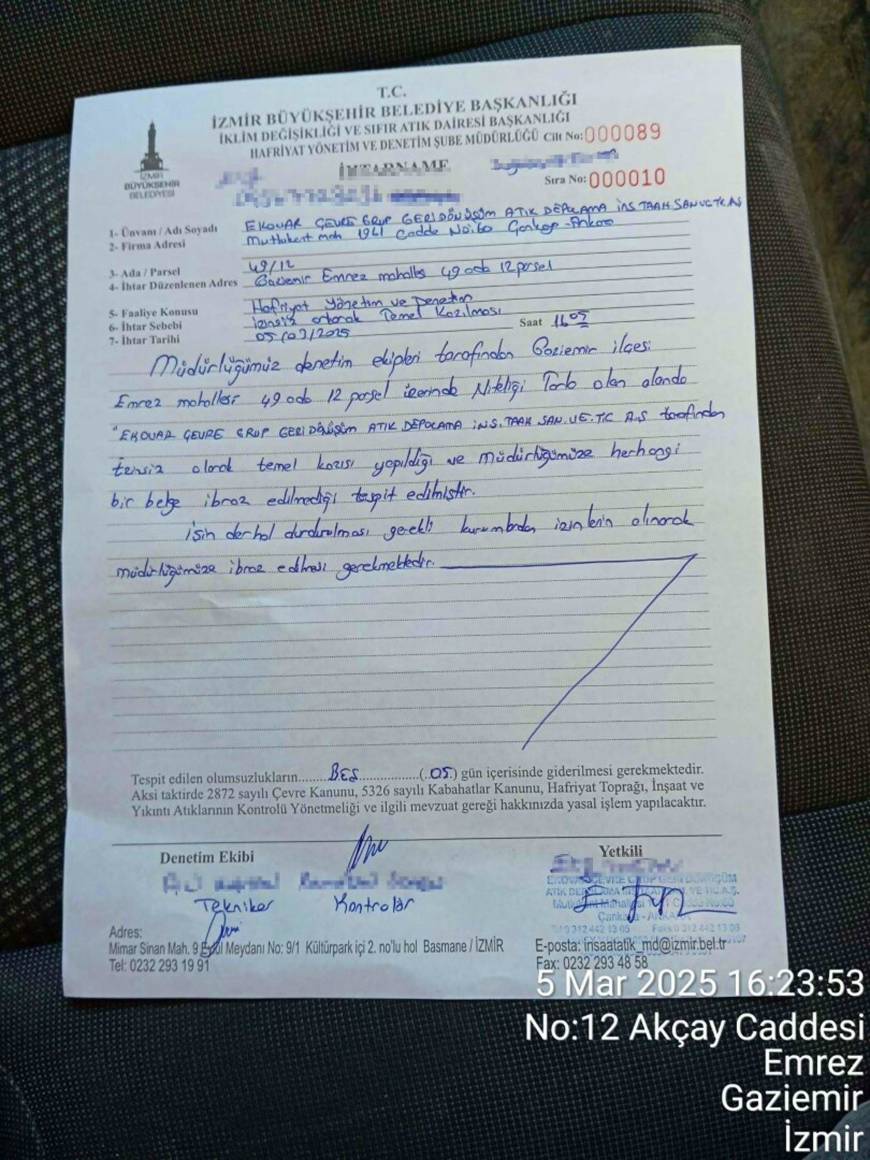 T.C.
İZMİR BÜYÜKŞEHİR BELEDİYE BAŞKANLIĞI
İKLİM DEĞİŞİKLİĞİ VE SIFIR ATIK DAİRESİ BAŞKANLIĞI
HAFRİYAT YÖNETİM VE DENETİM ŞUBE MÜDÜRLÜĞÜ Cilt No: 000089
İZMİR
BÜYÜKŞEHİR
BELEDİYESİ
İHTARNAME
Sıra No: 000010
1- Ünvanı / Adı Soyadı EKOVAR ÇEVRE GRUP GERİ DÖNÜŞÜM ATIK DEPOLAMA İNŞ TAAH SAN VE TİC AŞ
2- Firma Adresi Mutlukent mah 1961 Cadde No:60 Çankaya-Ankara
3- Ada / Parsel 49/12
4- İhtar Düzenlenen Adres Gaziemir Emrez mahallesi 49 ada 12 parsel
5- Faaliye Konusu Hafriyat Yönetim ve Denetim
6- İhtar Sebebi İzinsiz olarak Temel Kazılması
7- İhtar Tarihi 05/03/2025 Saat 16.05
Müdürlüğümüz denetim ekipleri tarafından Gaziemir ilçesi
Emrez mahallesi 49 ada 12 parsel üzerinde Niteliği Tarla olan alanda
"EKOVAR ÇEVRE GRUP GERİ DÖNÜŞÜM ATIK DEPOLAMA İNŞ. TAAH. SAN. VE. TİC A.Ş tarafından
olarak temel kazısı yapıldığı ve müdürlüğümüze herhangi
bir belge ibraz edilmediği tespit edilmiştir.
İşin derhal durdurulması gerekli kurumlardan izinlerin alınarak
müdürlüğümüze ibraz edilmesi gerekmektedir.
Tespit edilen olumsuzlukların.......BEŞ...............(.05.) gün içerisinde giderilmesi gerekmektedir.
Aksi taktirde 2872 sayılı Çevre Kanunu, 5326 sayılı Kabahatlar Kanunu, Hafriyat Toprağı, İnşaat ve
Yıkıntı Atıklarının Kontrolü Yönetmeliği ve ilgili mevzuat gereği hakkınızda yasal işlem yapılacaktır.
Denetim Ekibi Yetkili
Tekniker Kontrolör
Adres:
Mimar Sinan Mah. 9 Eylül Meydanı No: 9/1 Kültürpark içi 2. no'lu hol Basmane / İZMİR
Tel: 0232 293 19 91
E-posta: insaatatik_md@izmir.bel.tr
Fax: 0232 293 48 58
5 Mar 2025 16:23:53
No:12 Akçay Caddesi
Emrez
Gaziemir
İzmir